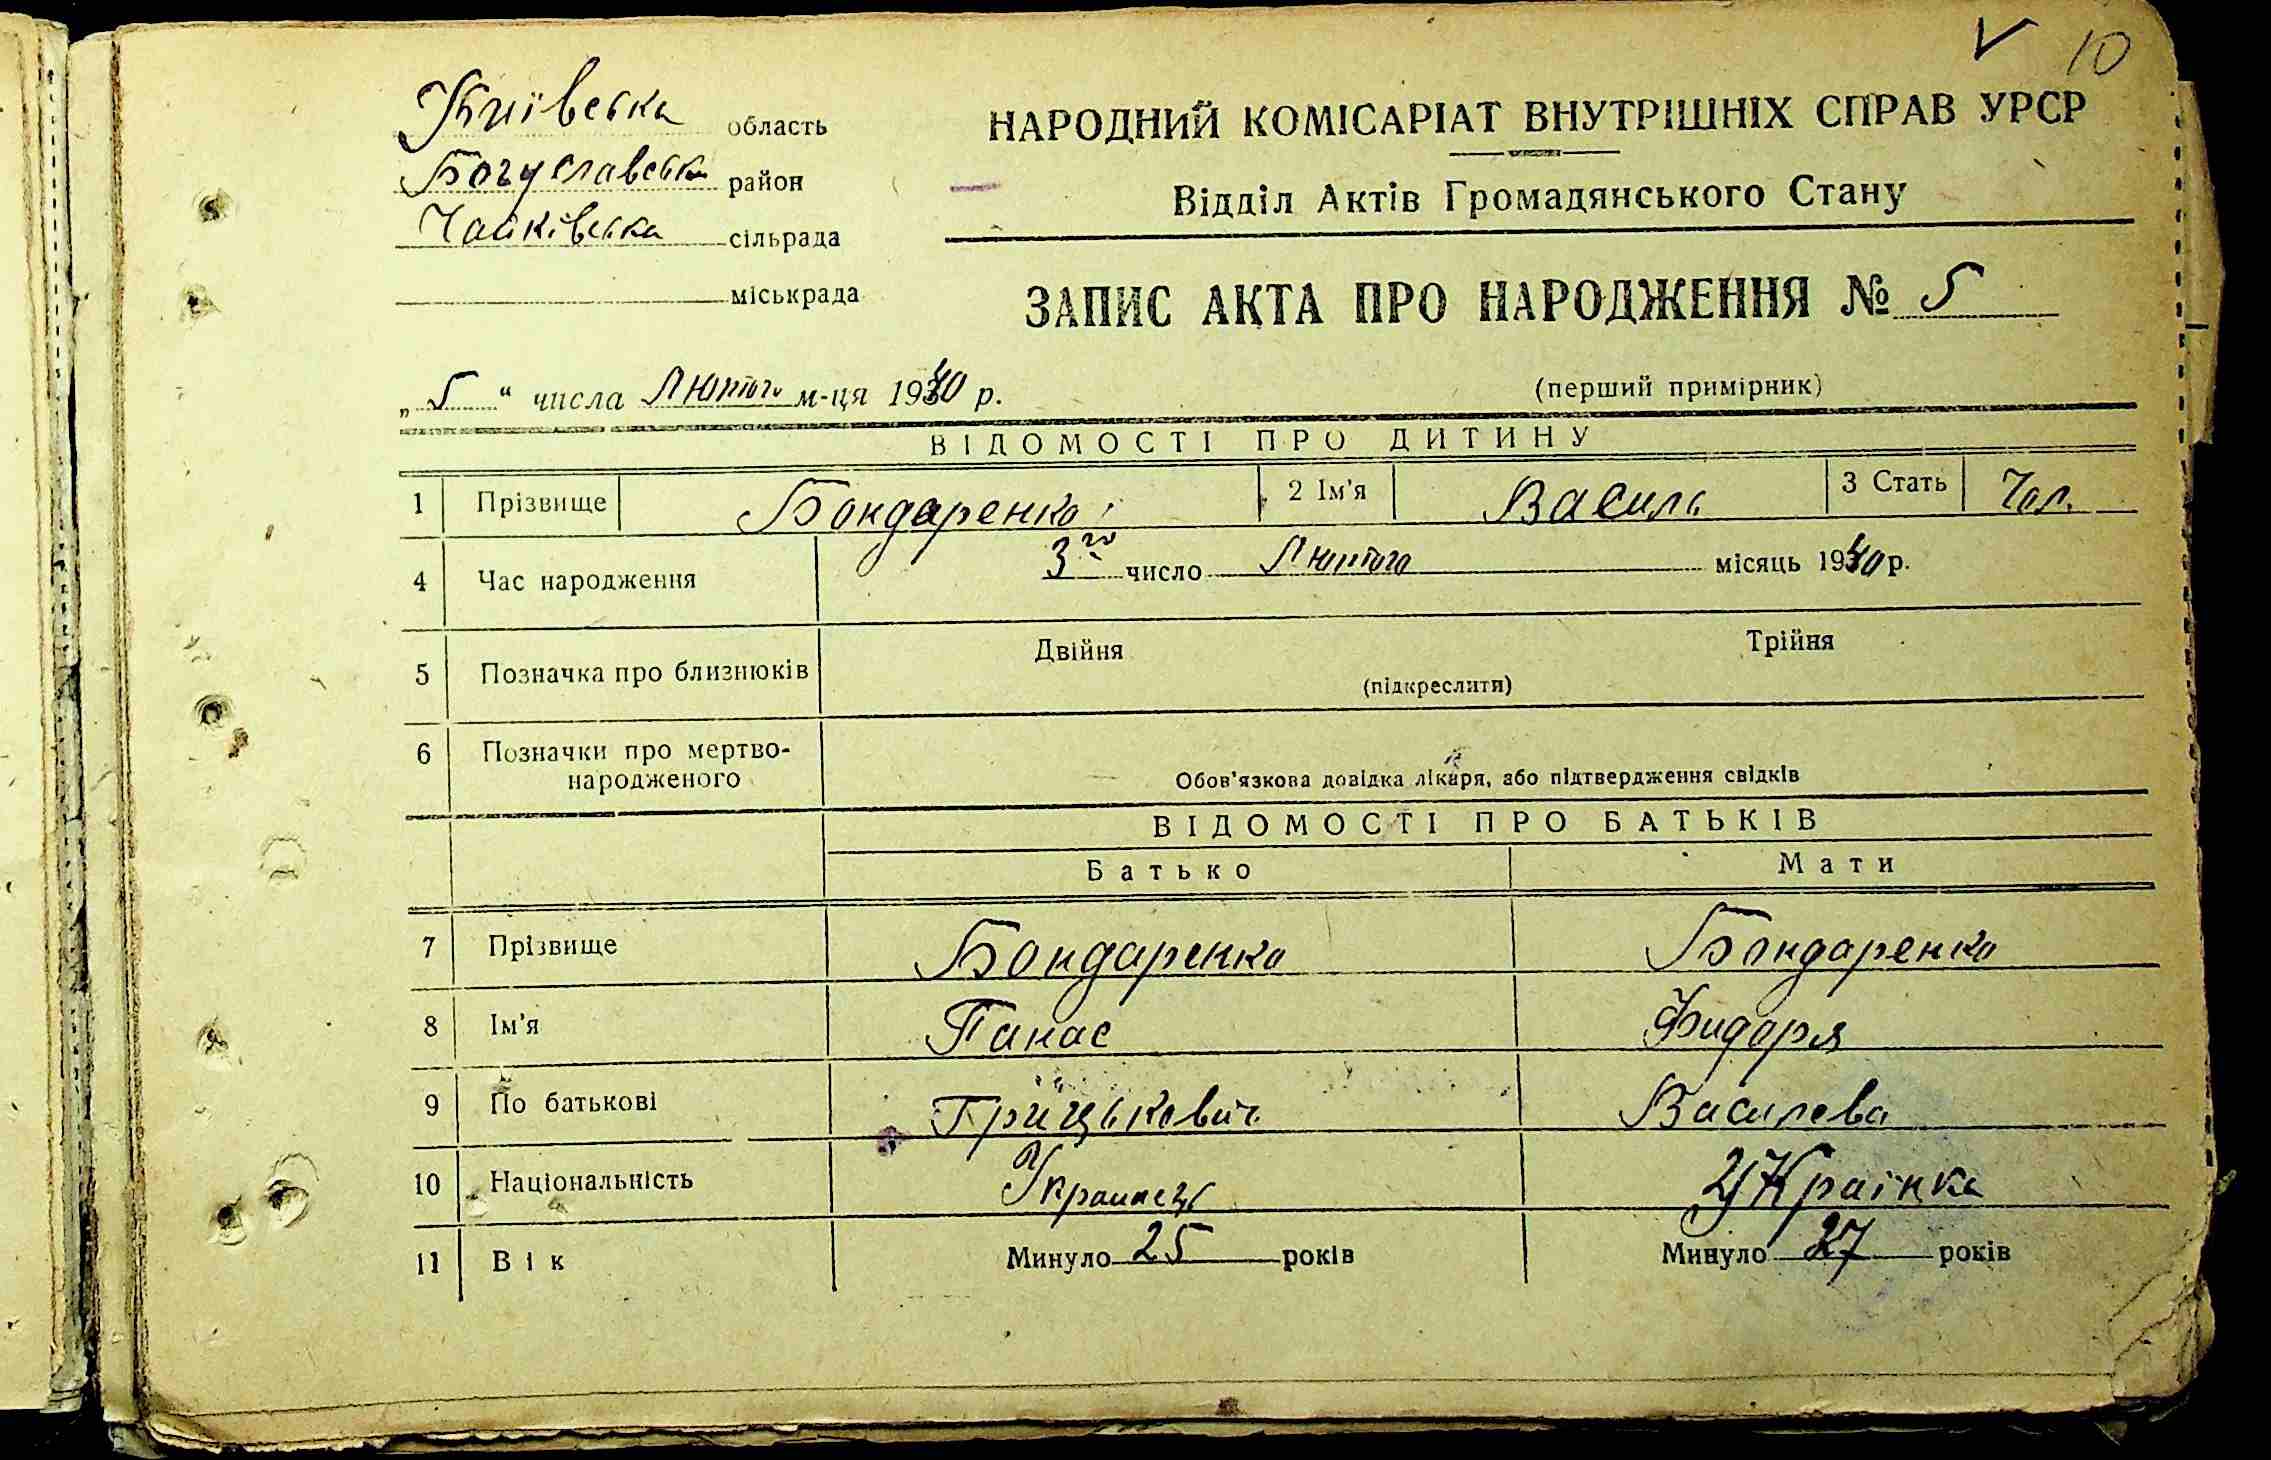 10
Київська область
Богуславськ район
Чайківська сільрада
міськрада
НАРОДНИЙ КОМІСАРІАТ ВНУТРІШНІХ СПРАВ УРСР
Відділ Актів Громадянського Стану
ЗАПИС АКТА ПРО НАРОДЖЕННЯ № 5
„5“ числа Лютого м-ця 1940 р.
(перший примірник)
ВІДОМОСТІ ПРО ДИТИНУ
1 Прізвище Бондаренко 2 Ім'я Василь 3 Стать Чол.
4 Час народження 3го число Лютого місяць 1940 р.
5 Позначка про близнюків Двійня Трійня
(підкреслити)
6 Позначки про мертво-
народженого
Обов'язкова довідка лікаря, або підтвердження свідків
ВІДОМОСТІ ПРО БАТЬКІВ
Батько Мати
7 Прізвище Бондаренко Бондаренко
8 Ім'я Панас Фидоря
9 По батькові Грицькович Василева
10 Національність Украинець Українка
11 Вік Минуло 25 років Минуло 27 років